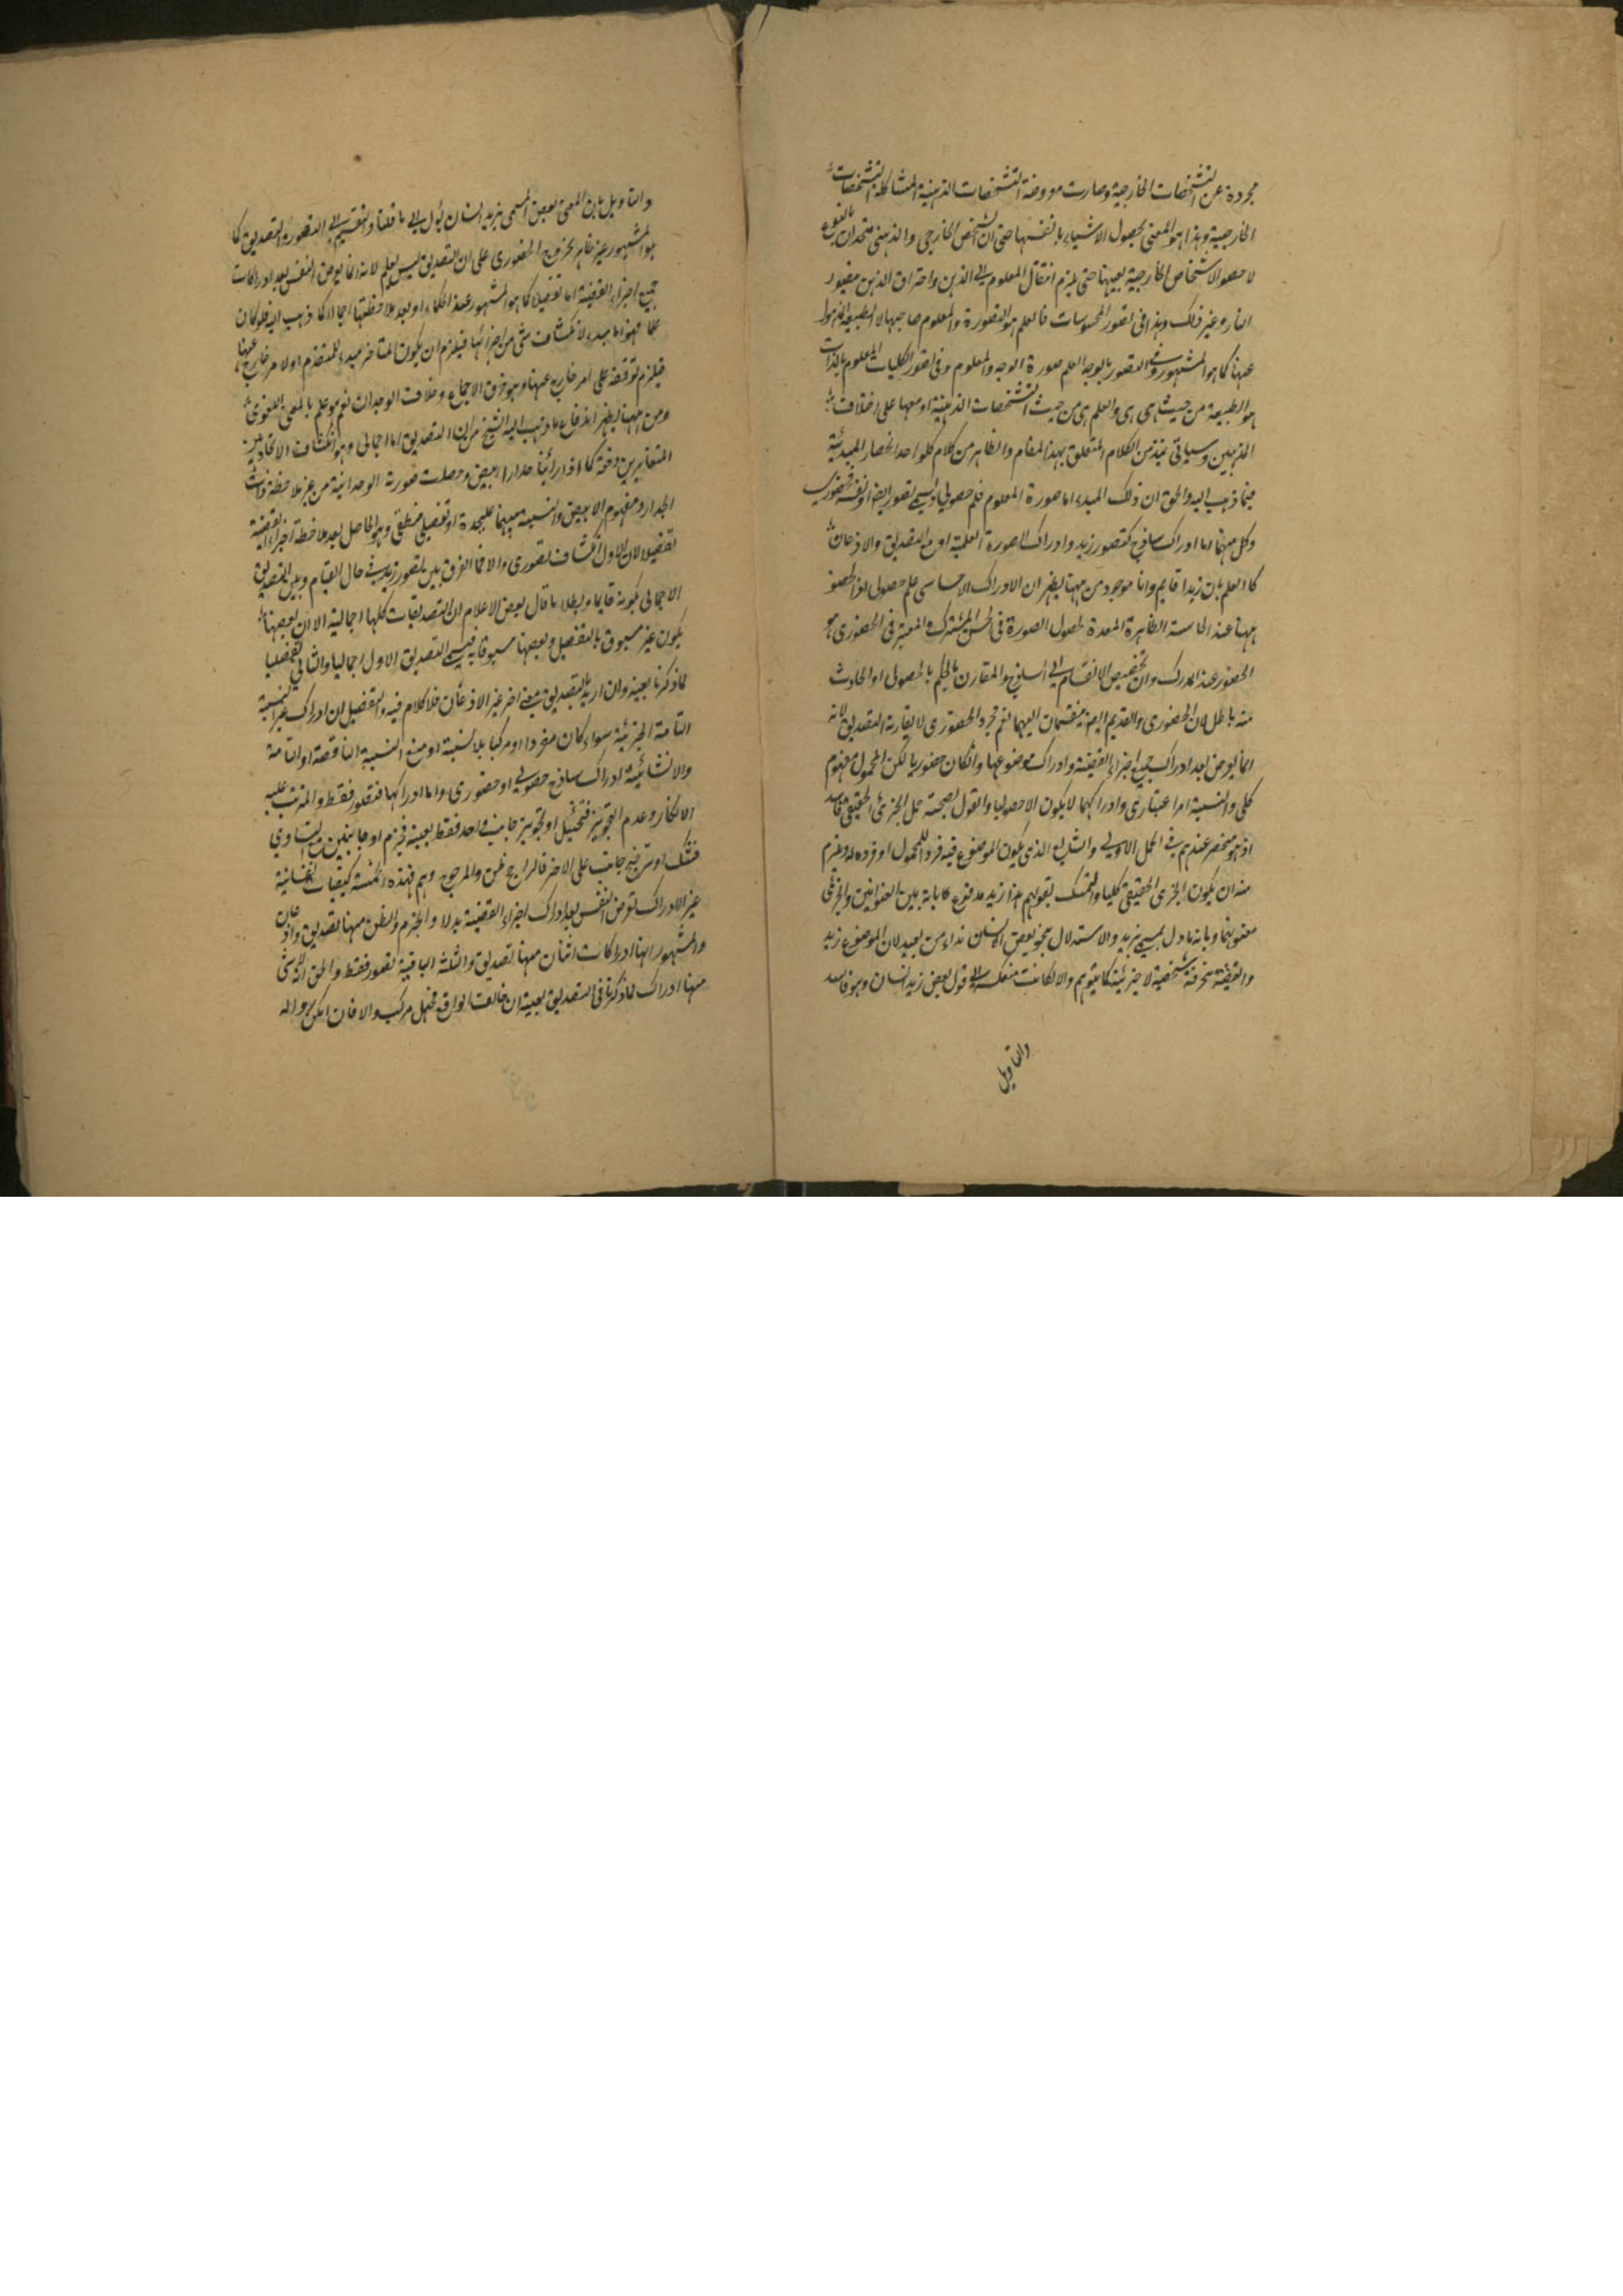 مجردة عن التشخصات الخارجية وصارت معروضة التشخصات الذهنية المشاكلة التشخصات
الخارجية وهذا هو المعنى بحصول الاشياء بانفسها حتى ان الشخص الخارجي والذهني متحدان بالنوع
لا حصول الاشخاص الخارجية بعينها حتى يلزم انتقال المعلوم الى الذهن واحتراق الذهن بتصور
النار وغير ذلك وهذا في تصور المحسوسات فالعلم هو الصورة والمعلوم صاحبها لا الطبيعة
عنها كما هو المشهور وفي التصور بالوجه العلم صورة الوجه والمعلوم وفي تصور الكليات المعلوم بالذات
هو الطبيعة من حيث هي هي والعلم هي من حيث التشخصات الذهنية او معها على اختلاف
المذهبين وسياتي نبذ من الكلام المتعلق بهذا المقام والظاهر من كلام كل واحد انحصار المبدئية
فيما ذهب اليه والحق ان ذلك المبدء اما صورة المعلوم فعلم حصولي ويسمى تصورا ايضا او نفسه فحضوري
وكل منهما اما ادراك ساذج كتصور زيد وادراك الصورة العلمية او مع التصديق والاذعان
كالعلم بان زيدا قايم وانا موجود من ههنا يظهر ان الادراك الاحساسي علم حصولي اذ الحضور
ههنا عند الحاسة الظاهرة المعدة لحصول الصورة في الحس المشترك والمعتبر في الحضوري هو
الحضور عند المدرك وان تخصيص الانقسام الى الساذج والمقارن بالحكم بالحصولي او الحادث
منه باطل لان الحضوري والقديم ايضا ينقسمان اليهما نعم مجرد الحضوري لا يقارنه التصديق لانه
انما يعرض بعد ادراك جميع اجزاء القضية وادراك موضوعها وان كان حضوريا لكن المحمول مفهوم
كلي والنسبة امر اعتباري وادراكهما لا يكون الا حصوليا والقول بصحة حمل الجزئي الحقيقي فاسد
اذ هو منحصر عندهم في الحمل الاولي والشايع الذي يكون الموضوع فيه فردا للمحمول او فرده له ويلزم
منه ان يكون الجزئي الحقيقي كليا والتمسك بقولهم هذا زيد مدفوع كما بانه بين العنوانين والجزئي
معنونهما وبانه ماول بمسمى بزيد والاستدلال بنحو بعض الانسان نداء من بعيد لان الموضوع زيد
والقضية منحرفة شخصية لا جزئية كما يتوهم والا لكانت منعكسة الى قول بعض زيد انسان وهو فاسد
والتاويل
والتاويل بان المعنى بعض المسمى بزيد انسان يؤل الى ما قلنا والتقسيم الى التصور والتصديق كما
هو المشهور غير ظاهر لخروج الحضوري على ان التصديق ليس بعلم لانه انما يعرض النفس بعد ادراكات
جميع اجزاء القضية اما تفصيلا كما هو المشهور عند الحكماء او بعد ملاحظتها اجمالا كما ذهب اليه فلو كان
علما فهو اما مبدء لانكشاف شئ من اجزائها فيلزم ان يكون المتاخر مبدء للمتقدم او لامر خارج عنها
فيلزم توقفه على امر خارج عنها وهو خرق الاجماع وخلاف الوجدان نعم هو علم بالمعنى اللغوي
ومن ههنا يظهر اندفاع ما ذهب اليه الشيخ من ان التصديق اما اجمالي وهو انكشاف الاتحاد بين
المتغايرين دفعة كما اذا رأينا جدارا ابيض وحصلت صورته الوحدانية من غير ملاحظة ذات
الجدار ومفهوم الابيض والنسبة بينهما عليحدة او تفصيلي منطقي وهو الحاصل بعد ملاحظة اجزاء القضية
تفصيلا لان الاول انكشاف تصوري والا فما الفرق بين تصور زيد في حال القيام وبين التصديق
الاجمالي بكونه قايما ويبطل ما قال بعض الاعلام ان التصديقات كلها اجمالية الا ان بعضها
يكون غير مسبوق بالتفصيل وبعضها مسبوقا به فيسمى التصديق الاول اجماليا والثاني تفصيليا
لما ذكرنا بعينه وان اريد بالتصديق معنى اخر غير الاذعان فلا كلام فيه والتفصيل ان ادراك غير النسبة
التامة الخبرية سواء كان مفردا او مركبا بلا نسبة او مع النسبة الناقصة او التامة
والانشائية ادراك ساذج حصولي او حضوري واما ادراكها فتصور فقط والمترتب عليه
الانكار وعدم التجويز فتخييل او تجويز جانب واحد فقط بعينه فجزم او جانبين مع التساوي
فشك او ترجيح جانب على الاخر فالراجح ظن والمرجوح وهم فهذه الخمسة كيفيات نفسانية
غير الادراك تعرض النفس بعد ادراك اجزاء القضية بدلا والجزم والظن منها تصديق واذعان
والمشهور انها ادراكات اثنان منها تصديق والثلثة الباقية تصور فقط والحق انه لا شئ
منها ادراك لما ذكرنا في التصديق بعينه ان خالف الواقع فجهل مركب والا فان امكن زواله